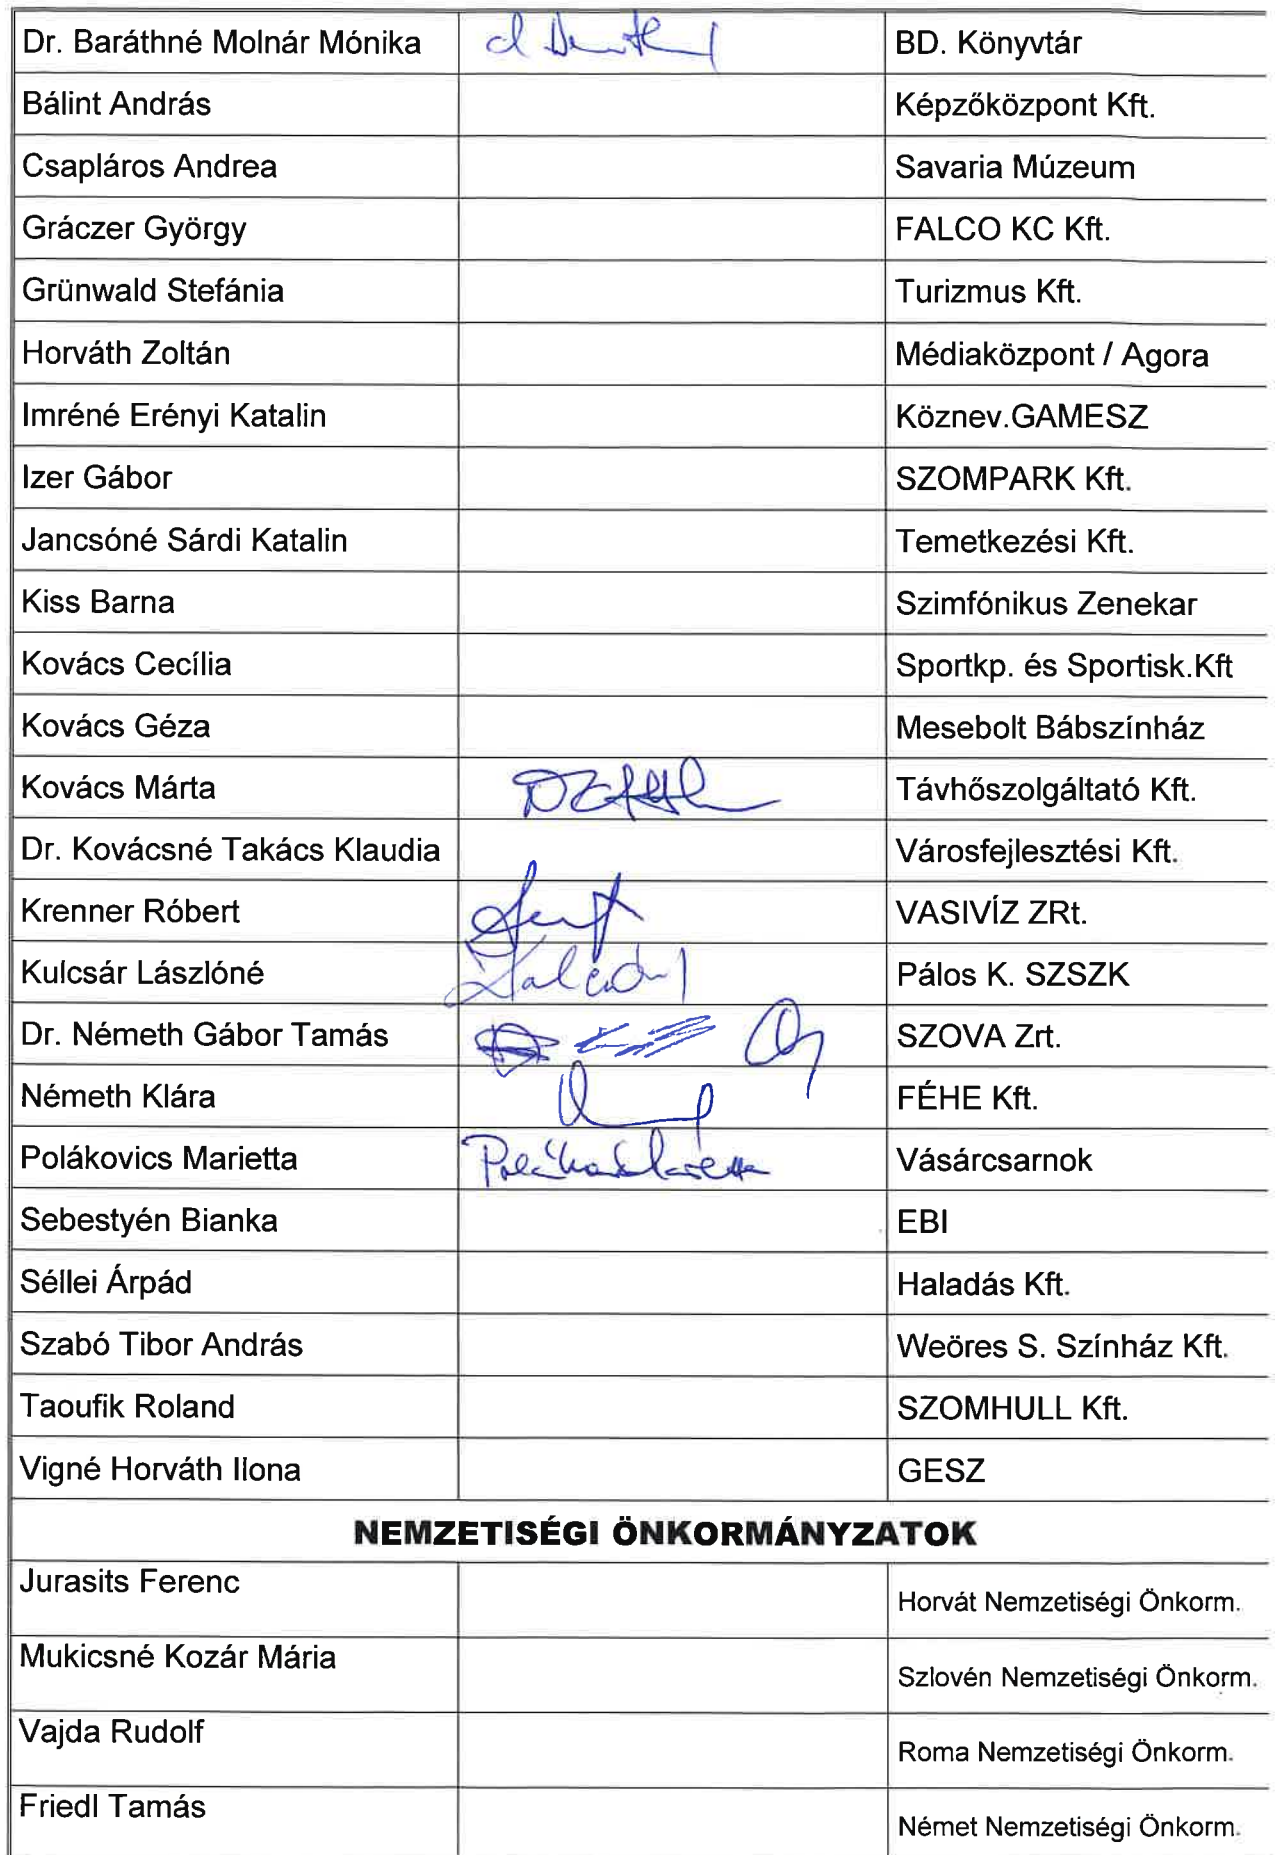 Dr. Baráthné Molnár Mónika BD. Könyvtár
Bálint András Képzőközpont Kft.
Csapláros Andrea Savaria Múzeum
Gráczer György FALCO KC Kft.
Grünwald Stefánia Turizmus Kft.
Horváth Zoltán Médiaközpont / Agora
Imréné Erényi Katalin Köznev.GAMESZ
Izer Gábor SZOMPARK Kft.
Jancsóné Sárdi Katalin Temetkezési Kft.
Kiss Barna Szimfónikus Zenekar
Kovács Cecília Sportkp. és Sportisk.Kft
Kovács Géza Mesebolt Bábszínház
Kovács Márta Távhőszolgáltató Kft.
Dr. Kovácsné Takács Klaudia Városfejlesztési Kft.
Krenner Róbert VASIVÍZ ZRt.
Kulcsár Lászlóné Pálos K. SZSZK
Dr. Németh Gábor Tamás SZOVA Zrt.
Németh Klára FÉHE Kft.
Polákovics Marietta Vásárcsarnok
Sebestyén Bianka EBI
Séllei Árpád Haladás Kft.
Szabó Tibor András Weöres S. Színház Kft.
Taoufik Roland SZOMHULL Kft.
Vigné Horváth Ilona GESZ
NEMZETISÉGI ÖNKORMÁNYZATOK
Jurasits Ferenc Horvát Nemzetiségi Önkorm.
Mukicsné Kozár Mária Szlovén Nemzetiségi Önkorm.
Vajda Rudolf Roma Nemzetiségi Önkorm.
Friedl Tamás Német Nemzetiségi Önkorm.